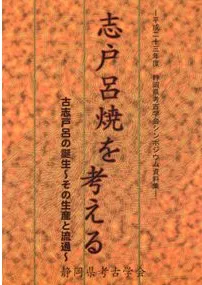 平成二十三年度 静岡県考古学会シンポジウム資料集
志戸呂焼を考える
古志戸呂の誕生～その生産と流通～
静岡県考古学会